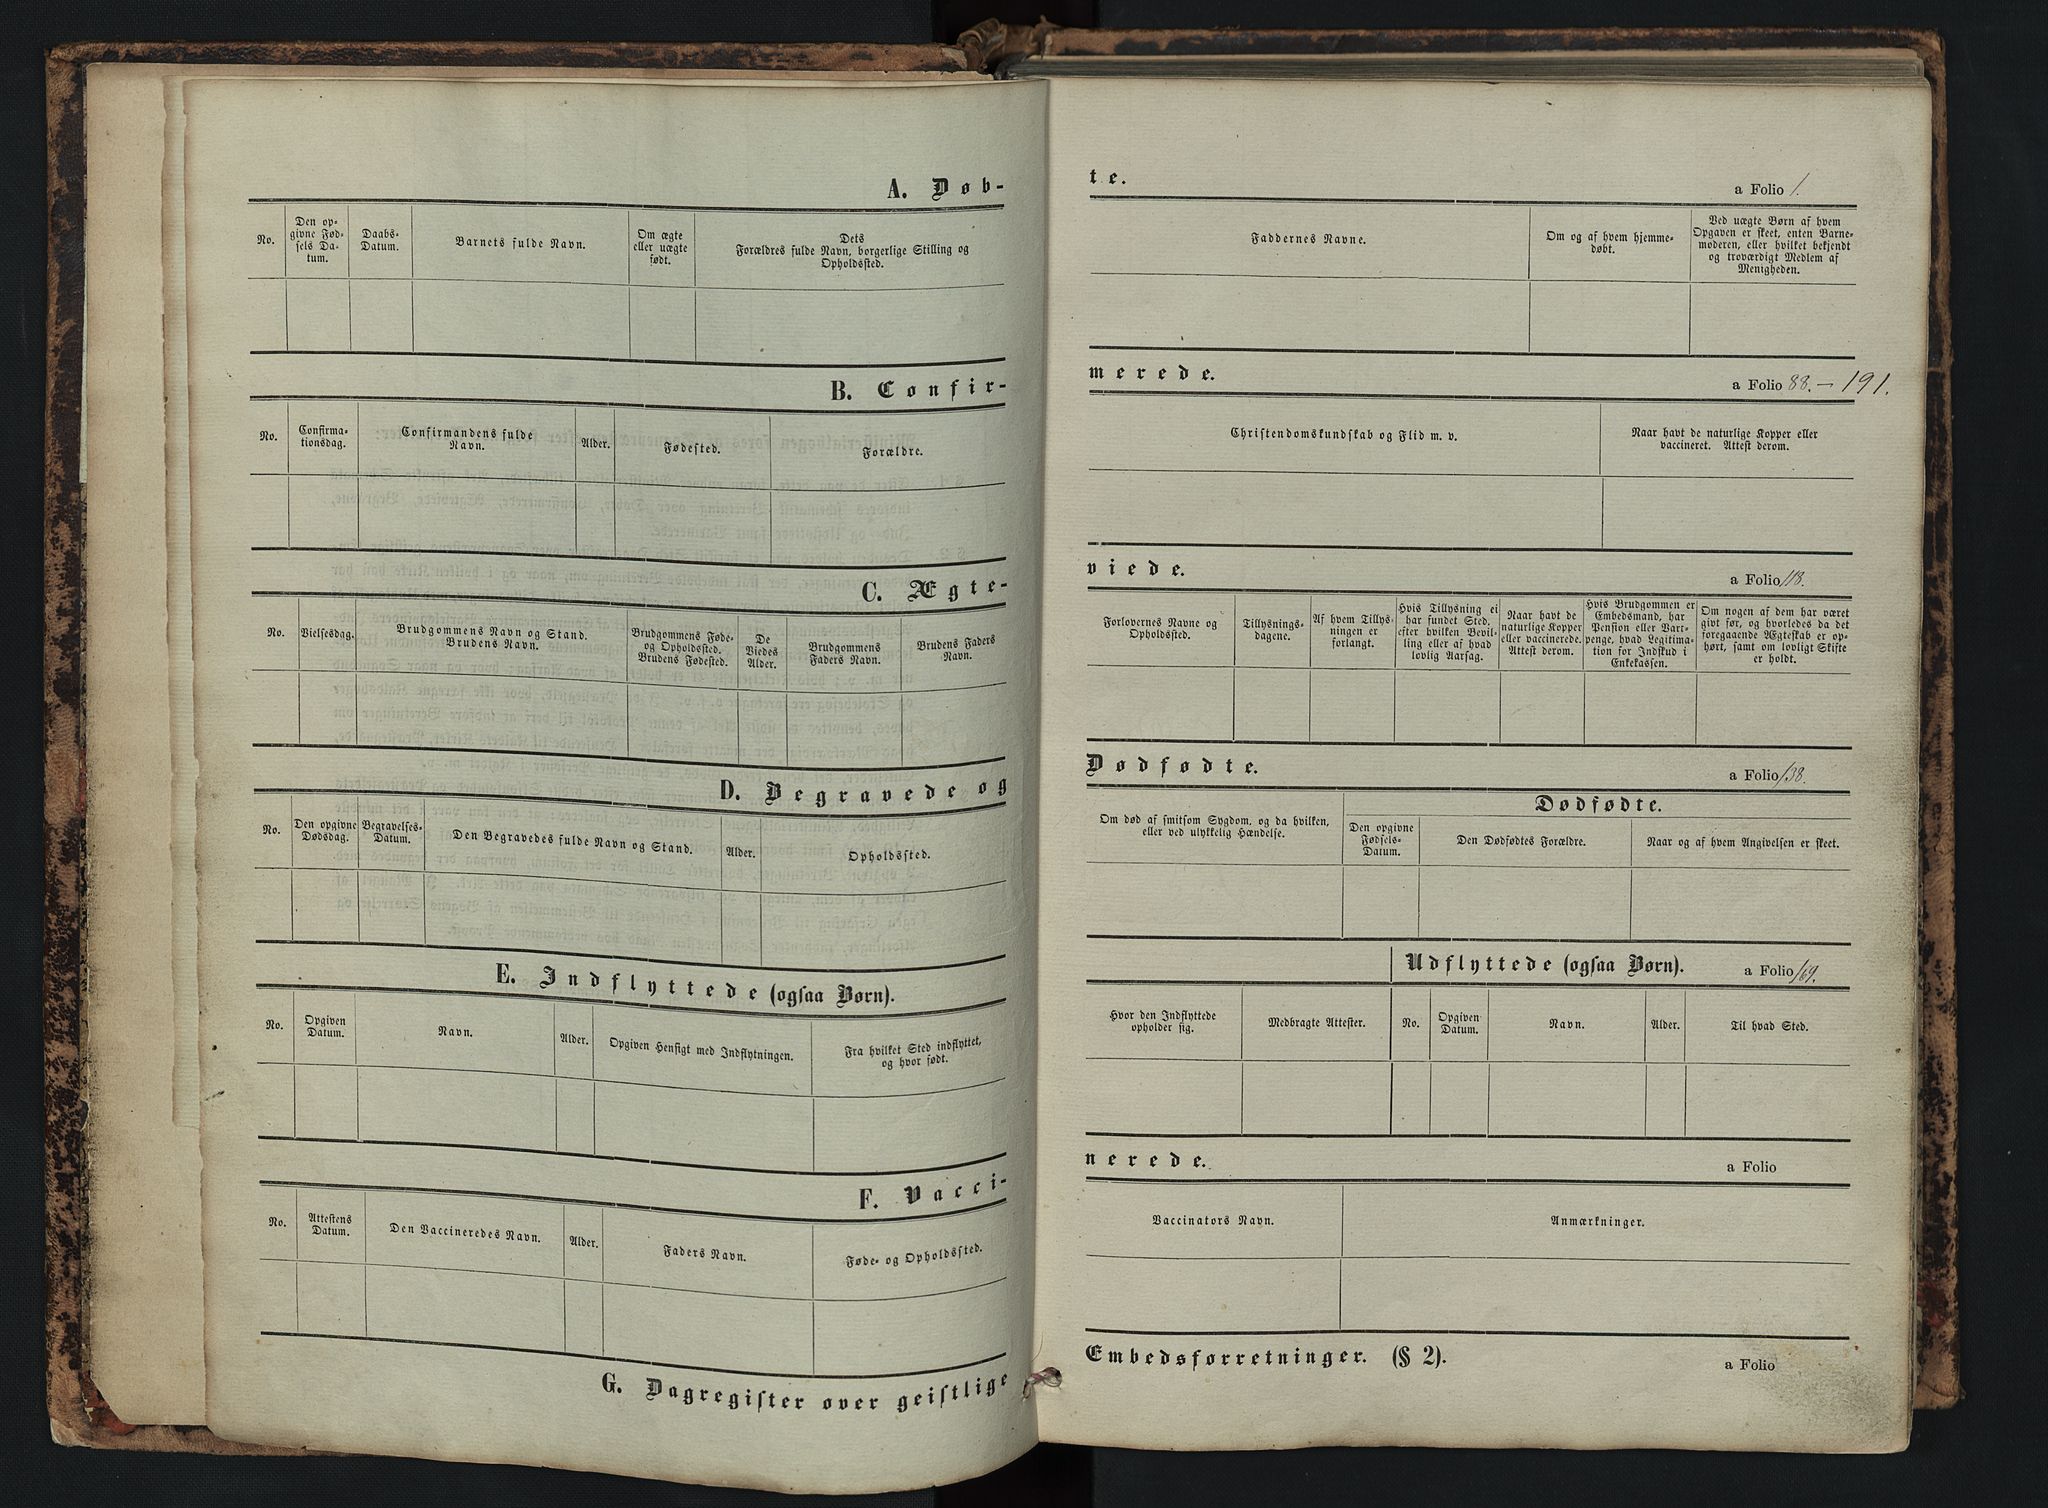 A. Døb-
te.
a Folio 1.
No.
Den op-
givne Fød-
sels Da-
tum.
Daabs-
Datum.
Barnets fulde Navn.
Om ægte
eller uægte
født.
Dets
Forældres fulde Navn, borgerlige Stilling og
Opholdssted.
Faddernes Navne.
Om og af hvem hjemme-
døbt.
Ved uægte Børn af hvem
Opgaven er skeet, enten Barne-
moderen, eller hvilket bekjendt
og troværdigt Medlem af
Menigheden.
B. Confir-
merede.
a Folio 88. - 191.
No.
Confirma-
tionsdag.
Confirmandens fulde
Navn.
Alder.
Fødested.
Forældre.
Christendomskundskab og Flid m. v.
Naar havt de naturlige Kopper eller
vaccineret. Attest derom.
C. Ægte-
viede.
a Folio 118.
No.
Vielsesdag.
Brudgommens Navn og Stand.
Brudens Navn.
Brudgommens Føde-
og Opholdssted.
Brudens Fødested.
De
Viedes
Alder.
Brudgommens
Faders Navn.
Brudens Faders
Navn.
Forlovernes Navne og
Opholdssted.
Tillysnings-
dagene.
Af hvem Tillys-
ningen er
forlangt.
Hvis Tillysning ei
har fundet Sted,
efter hvilken Bevil-
ling eller af hvad
lovlig Aarsag.
Naar havt de
naturlige Kopper
eller vaccinerede.
Attest derom.
Hvis Brudgommen er
Embedsmand, har
Pension eller Vart-
penge, hvad Legitima-
tion for Indskud i
Enkekassen.
Om nogen af dem har været
givt før, og hvorledes da det
foregaaende Ægteskab er op-
hørt, samt om lovligt Skifte
er holdt.
D. Begravede og
Dødfødte.
a Folio 138.
No.
Den opgivne
Dødsdag.
Begravelses-
Datum.
Den Begravedes fulde Navn og Stand.
Alder.
Opholdssted.
Om død af smitsom Sygdom, og da hvilken,
eller ved ulykkelig Hændelse.
Dødfødte.
Den opgivne
Fødsels-
Datum.
Den Dødfødtes Forældre.
Naar og af hvem Angivelsen er skeet.
E. Indflyttede (ogsaa Børn).
Udflyttede (ogsaa Børn).
a Folio 169.
No.
Opgiven
Datum.
Navn.
Alder.
Opgiven Hensigt med Indflytningen.
Fra hvilket Sted indflyttet,
og hvor født.
Hvor den Indflyttede
opholder sig.
Medbragte Attester.
No.
Opgiven
Datum.
Navn.
Alder.
Til hvad Sted.
F. Vacci-
nerede.
a Folio
No.
Attestens
Datum.
Den Vaccineredes Navn.
Alder.
Faders Navn.
Føde- og Opholdssted.
Vaccinators Navn.
Anmærkninger.
G. Dagregister over geistlige
Embedsforretninger. (§ 2).
a Folio